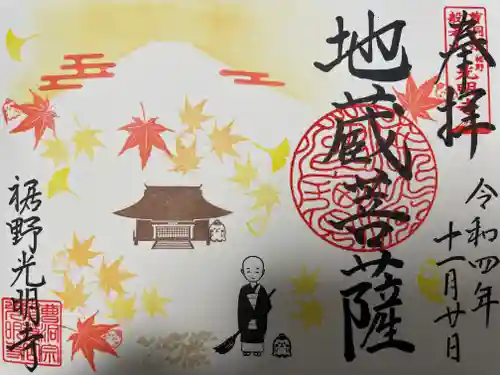 奉拝
令和四年
十一月廿日
地蔵菩薩
裾野光明寺
曹洞宗